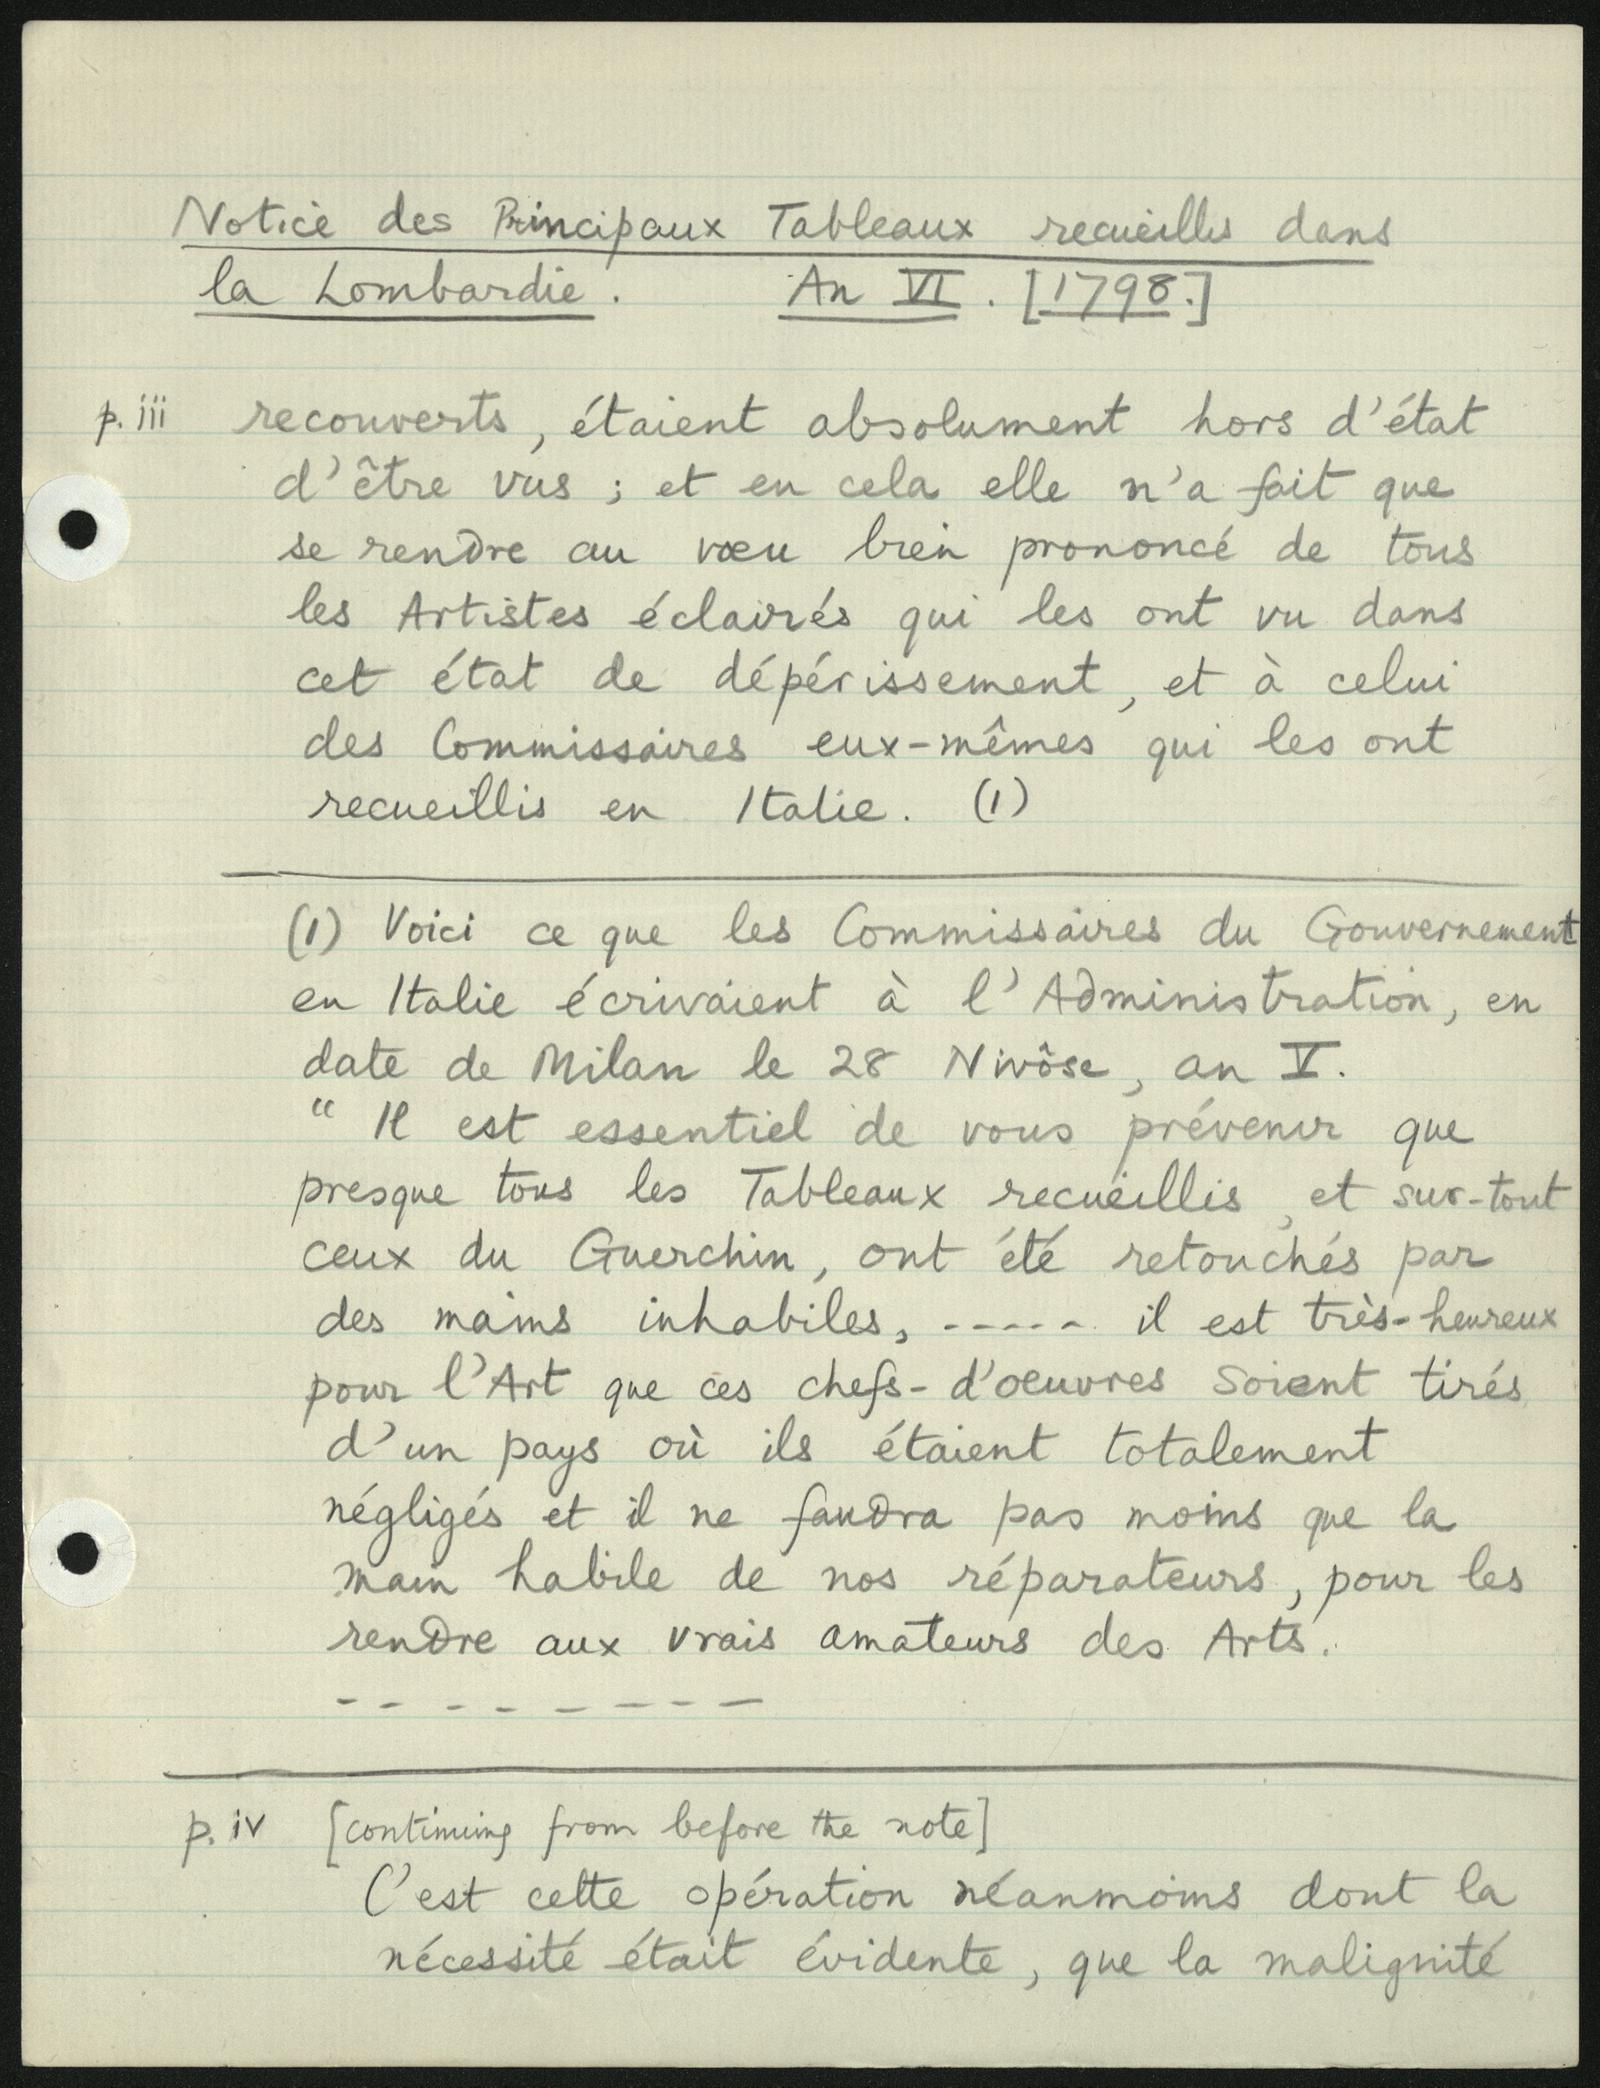 Notice des Principaux Tableaux recueillis dans
la Lombardie. An VI. [1798.]
p. iii recouverts, étaient absolument hors d'état
d'être vus ; et en cela elle n'a fait que
se rendre au vœu bien prononcé de tous
les Artistes éclairés qui les ont vu dans
cet état de dépérissement, et à celui
des Commissaires eux-mêmes qui les ont
recueillis en Italie. (1)
(1) Voici ce que les Commissaires du Gouvernement
en Italie écrivaient à l'Administration, en
date de Milan le 28 Nivôse, an V.
" Il est essentiel de vous prévenir que
presque tous les Tableaux recueillis, et sur-tout
ceux du Guerchin, ont été retouchés par
des mains inhabiles, ----- il est très-heureux
pour l'Art que ces chefs-d'oeuvres soient tirés
d'un pays où ils étaient totalement
négligés et il ne faudra pas moins que la
main habile de nos réparateurs, pour les
rendre aux vrais amateurs des Arts.
- - - - - - - -
p. iv [continuing from before the note]
C'est cette opération néanmoins dont la
nécessité était évidente, que la malignité